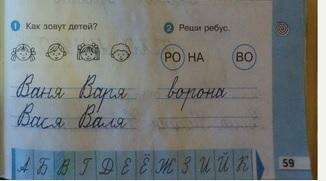 1 Как зовут детей?
2 Реши ребус.
РО НА ВО
Ваня Варя ворона
Вася Валя
А Б В Г Д Е Ё Ж З И Й К
59